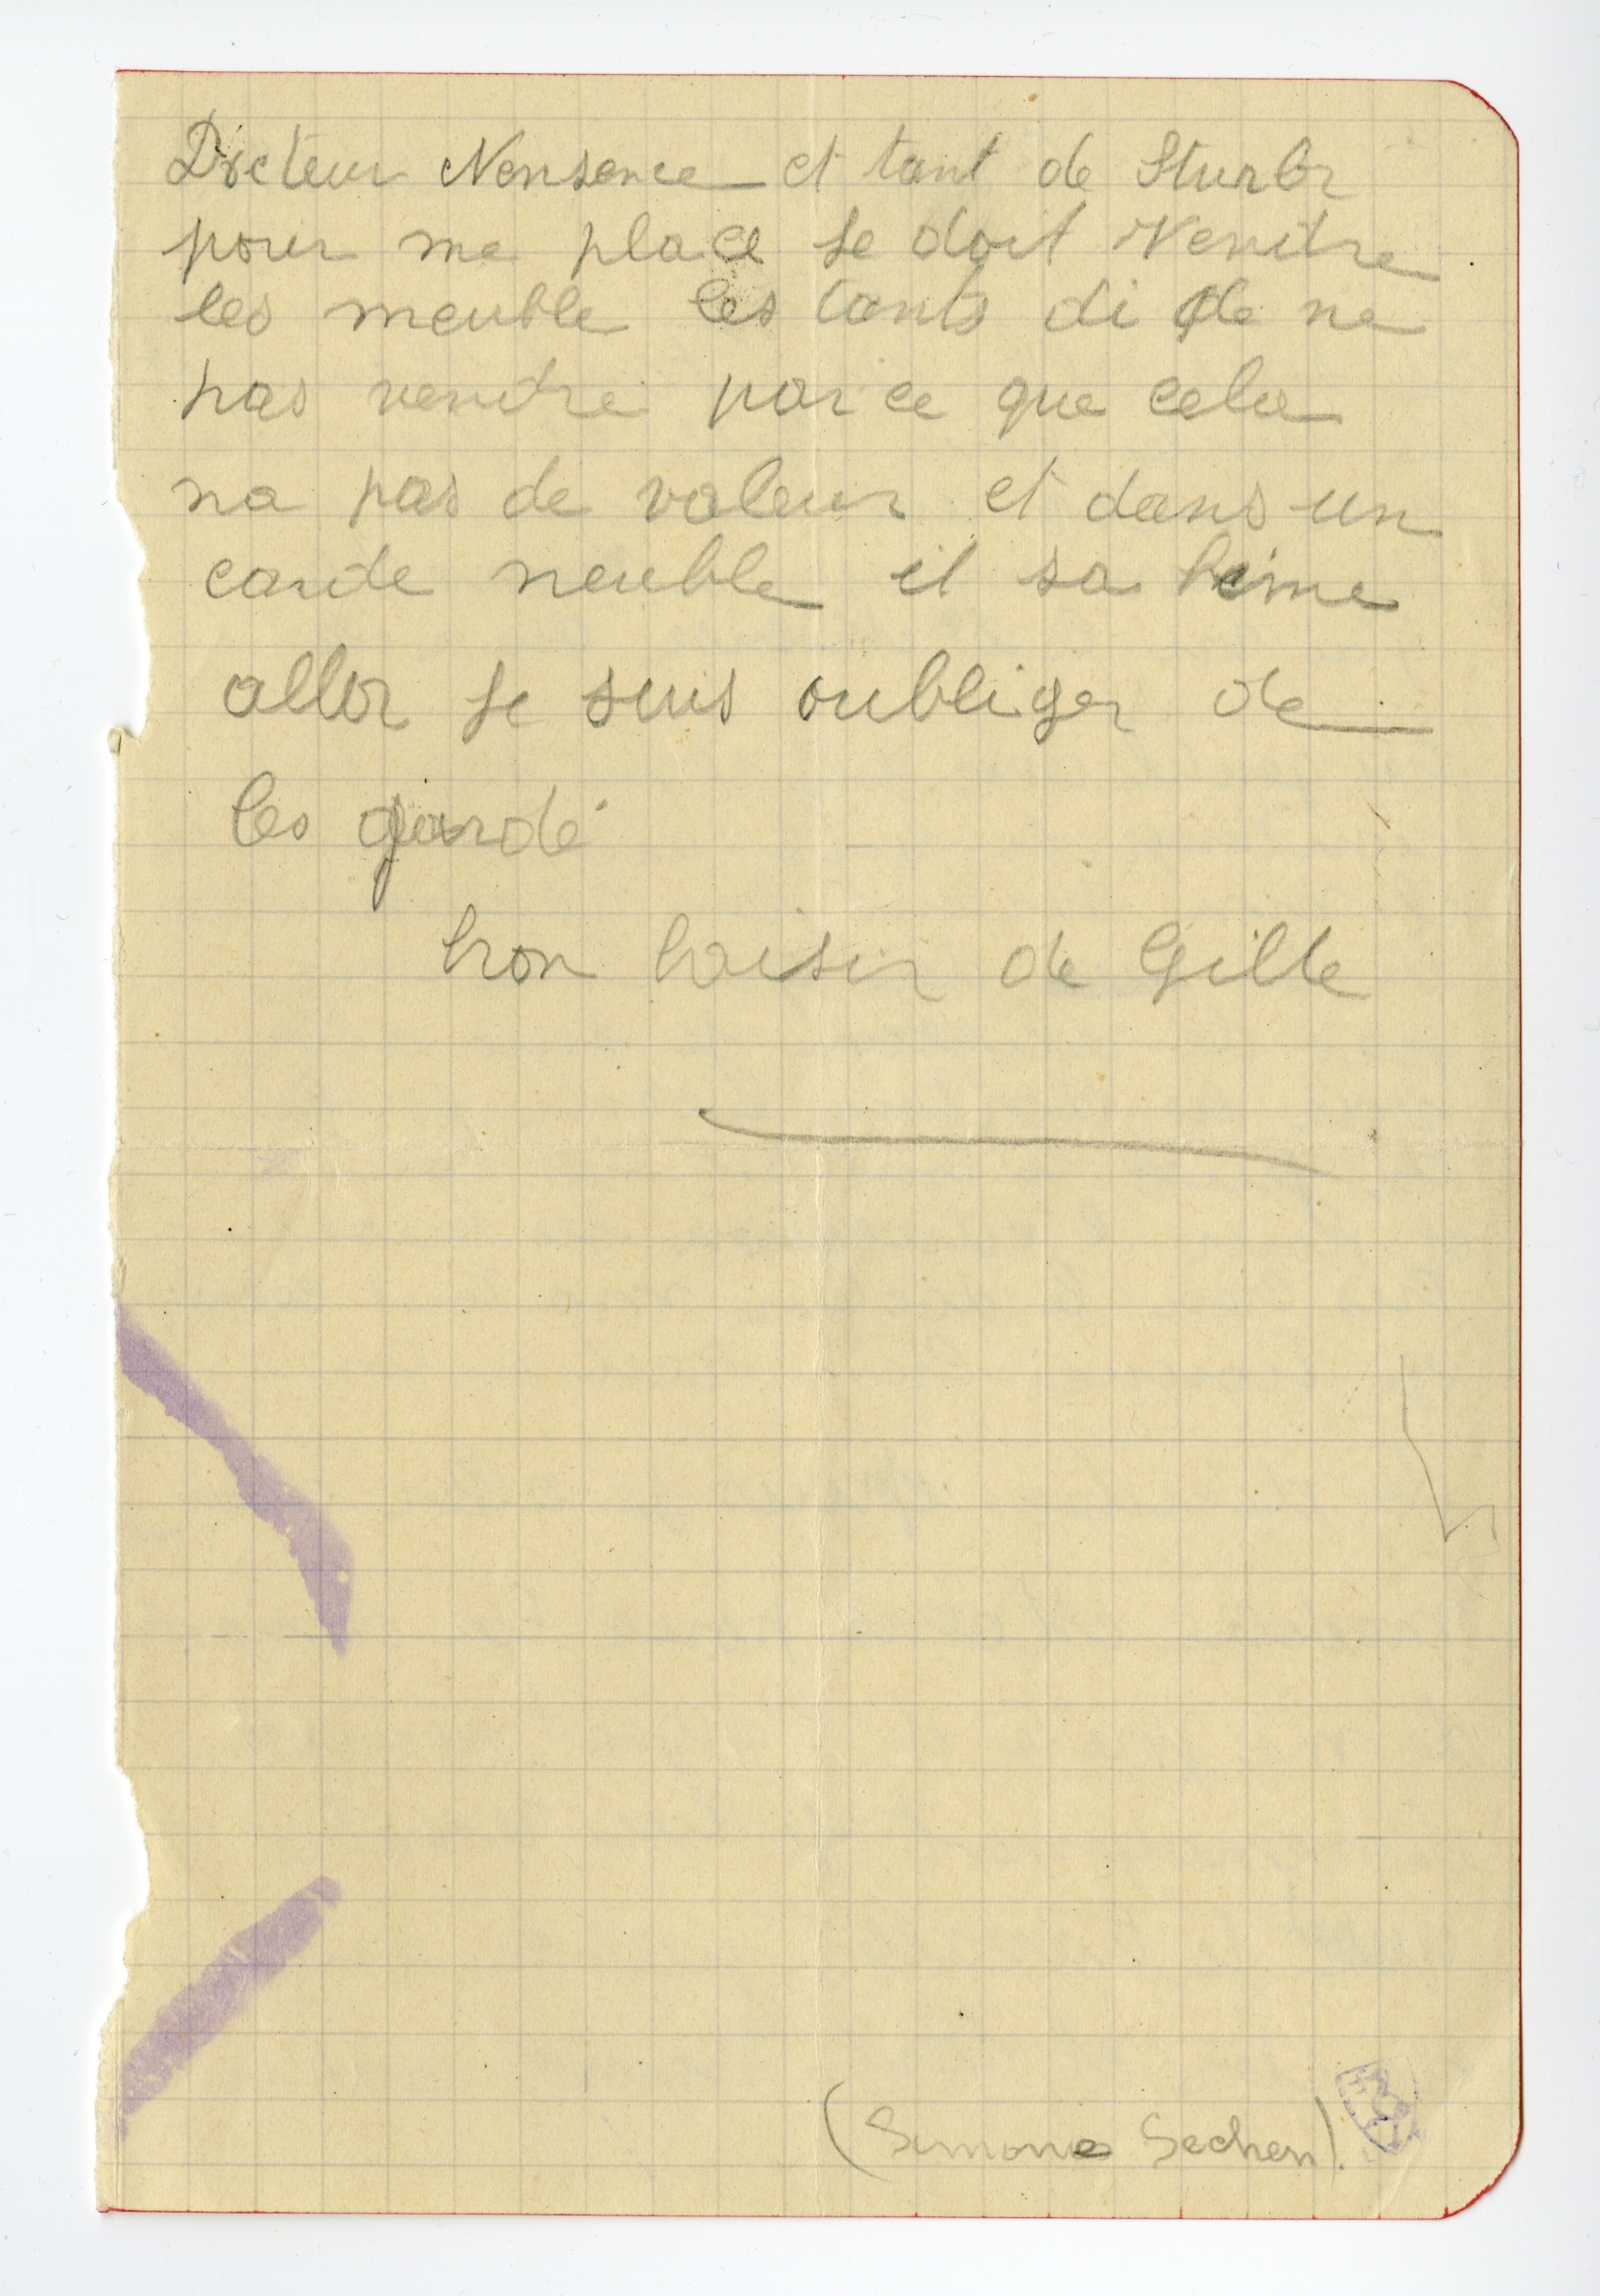 Docteur Nensence et tant de Sturler
pour me place Je doit Venitre
les meuble les tants di de ne
pas venitre parce que cela
na pas de valeur et dans un
carite neuble il sa bime
aller Je suis oubliger de
les gardé
bon baiser de Gille
(Simone Sechen)